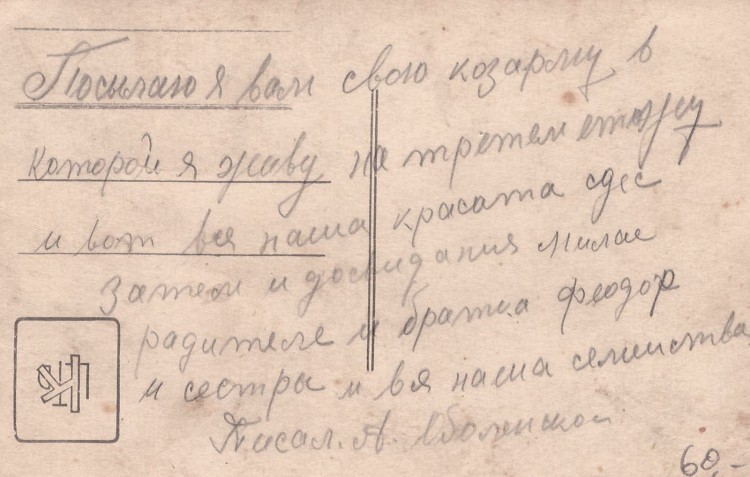 Посылаю я вам свою козарму в
которой я живу на третем етожу
и вот вся наша красата сдес
Затем и досвидания милае
радителе и братка феодор
и сестры и вся наша семиства
Писал. А. Оболенской
60,-